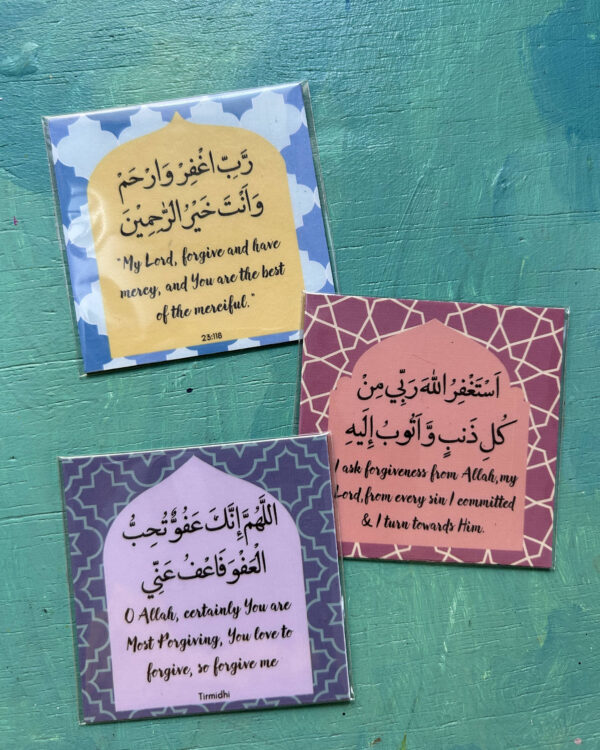 رَّبِّ اغْفِرْ وَارْحَمْ
وَأَنتَ خَيْرُ الرَّاحِمِيْنَ
"My Lord, forgive and have
mercy, and You are the best
of the merciful."
23:118
اَسْتَغْفِرُ اللهَ رَبِّي مِنْ
كُلِ ذَنبٍ وَّاَتُوبُ إِلَيهِ
I ask forgiveness from Allah, my
Lord, from every sin I committed
& I turn towards Him.
اللَّهُمَّ إِنَّكَ عَفُوٌّ تُحِبُّ
الْعَفْوَ فَاعْفُ عَنِّي
O Allah, certainly You are
Most Forgiving, You love to
forgive, so forgive me
Tirmidhi